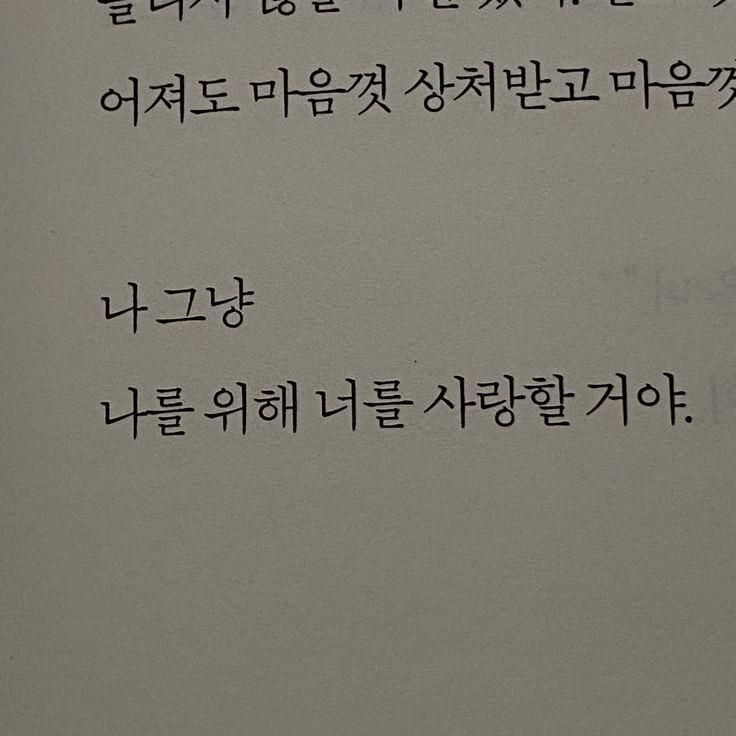 어져도 마음껏 상처받고 마음껏
나 그냥
나를 위해 너를 사랑할 거야.